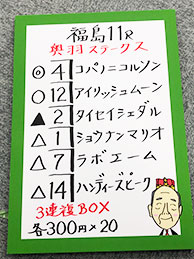 福島11R
奥羽ステークス
◎4 コパノニコルソン
○12 アイリッシュムーン
▲2 タイセイシェダル
△1 ショウナンマリオ
△7 ラボエーム
△14 ハンディーズピーク
3連複BOX
各300円×20